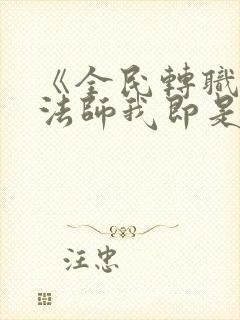 《全民轉職
法師我即是
汪忠